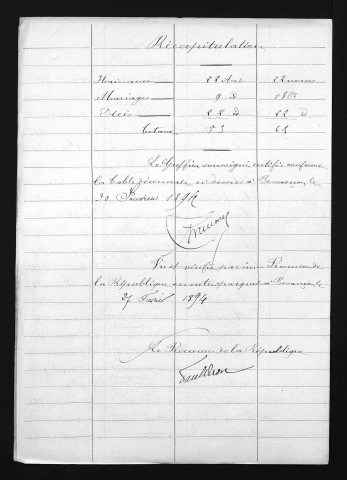 Récapitulation
Naissances 22 Actes 22 noms
Mariages 9 d° 18 d°
Décès 22 d° 22 d°
Totaux 53 62
Le Greffier soussigné certifie conforme
la table décennale ci-dessus à Besançon, le
30 Janvier 1894
Vu et vérifié par nous Procureur de
la République en notre parquet à Besançon, le
27 Février 1894
Le Procureur de la République